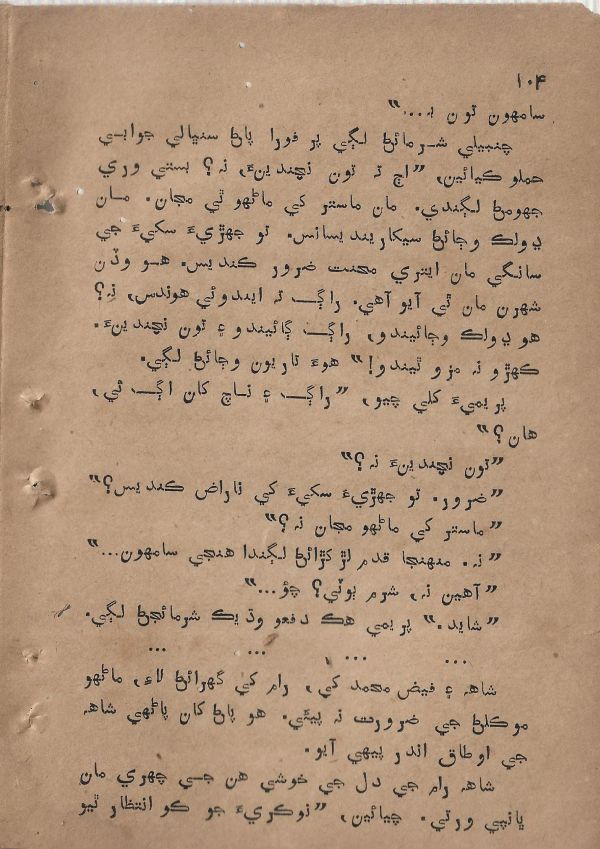 ۱۰۴
سامهون تون بہ...“
چنبيلي شرمائڻ لڳي پر فورا پاڻ سنڀالي جوابي
حملو ڪيائين، ”اڄ تہ تون نچندينءَ نہ؟ بستي وري
جهومڻ لڳندي. مان ماستر کي ماڻهو ٿي مڃان. مان
ڍولڪ وڄائڻ سيکاريندي سانس. تو جهڙيءَ سکيءَ جي
سانگي مان ايتري محنت ضرور ڪنديس. هو وڏن
شهرن مان ٿي آيو آهي. راڳ تہ ايندوئي هوندس، نہ؟
هو ڍولڪ وڄائيندو، راڳ ڳائيندو ۽ تون نچندينءَ.
ڪهڙو نہ مزو ٿيندو!“ هوءَ تاڙيون وڄائڻ لڳي.
پريميءَ کلي چيو، ”راڳ ۽ ناچ کان اڳ ئي،
هان؟“
”تون نچندينءَ نہ؟“
”ضرور. تو جهڙيءَ سکيءَ کي ناراض ڪنديس؟“
”ماستر کي ماڻهو مڃان نہ؟“
”نہ. منهنجا قدم لڙکڙائڻ لڳندا هنجي سامهون...“
”آهين نہ، شرم ٻوٽي؟ چؤ...“
”شايد.“ پريمي هڪ دفعو وڌيڪ شرمائجڻ لڳي.
... ... ... ...
شاهہ ۽ فيض محمد کي، رام کي گهرائڻ لاءِ، ماڻهو
موڪلڻ جي ضرورت نہ پيئي. هو پاڻ کان پاڻهي شاهہ
جي اوطاق اندر پيهي آيو.
شاهہ رام جي دل جي خوشي هن جي چهري مان
ڀانپي ورتي. چيائين، ”نوڪريءَ جو ڪو انتظار ٿيو